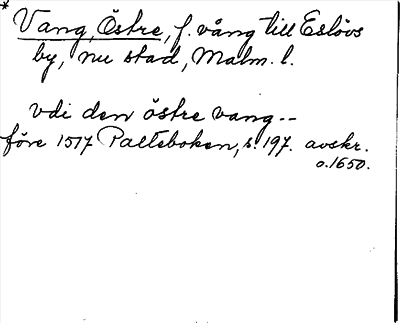 * Vang, Östre, f. vång till Eslövs
by, nu stad, Malm. l.
vdi den östre vang--
före 1517 Palteboken, s. 197. avskr.
o. 1650.